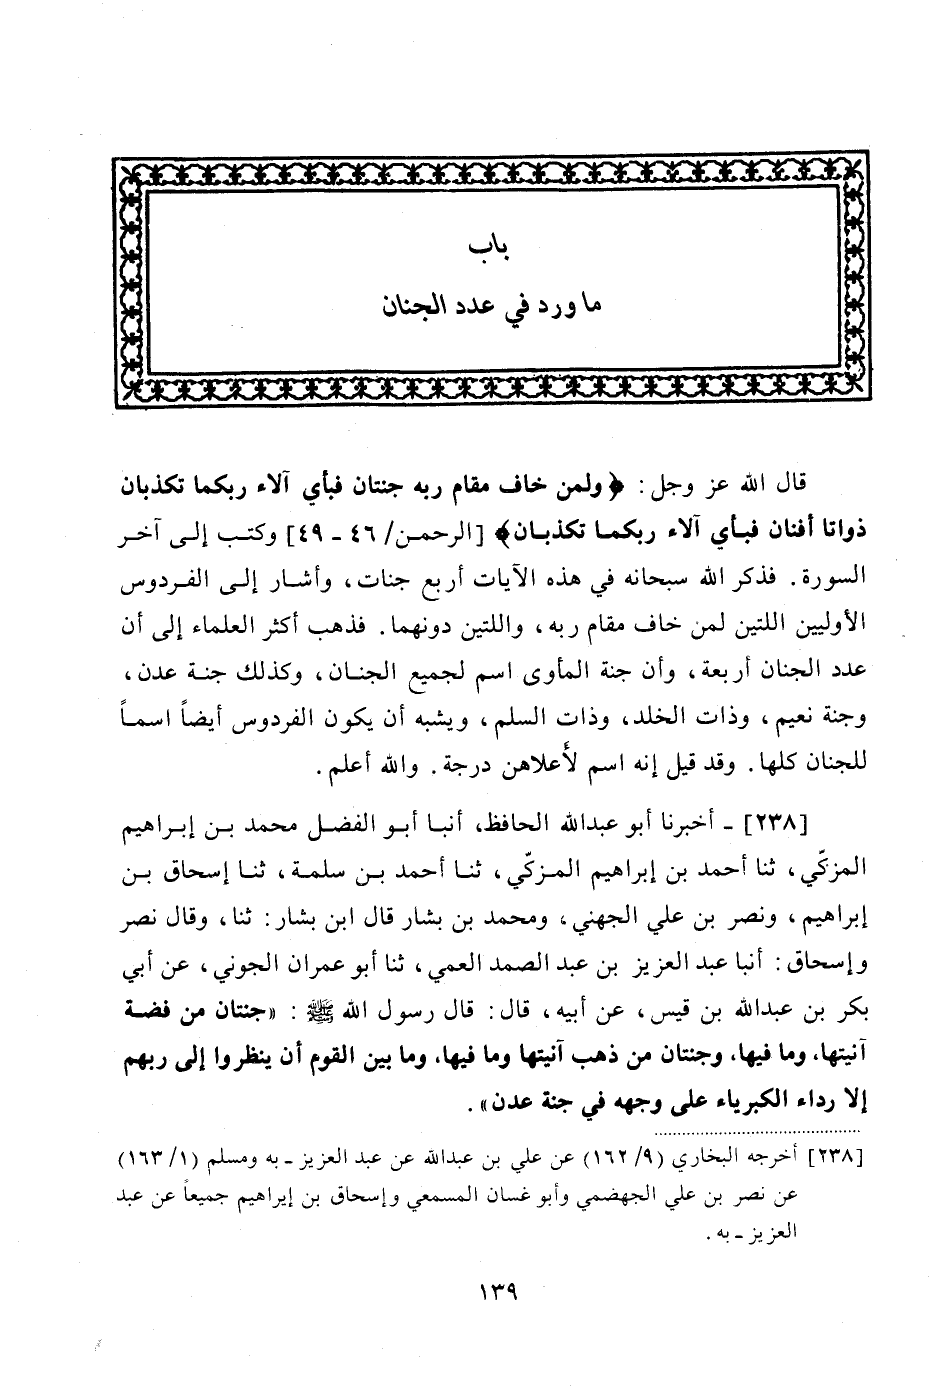 باب
ما ورد في عدد الجنان
قال الله عز وجل: ﴿ولمن خاف مقام ربه جنتان فبأي آلاء ربكما تكذبان
ذواتا أفنان فبأي آلاء ربكما تكذبان﴾ [الرحمن/ ٤٦ ـ ٤٩] وكتب إلى آخر
السورة. فذكر الله سبحانه في هذه الآيات أربع جنات، وأشار إلى الفردوس
الأوليين اللتين لمن خاف مقام ربه، واللتين دونهما. فذهب أكثر العلماء إلى أن
عدد الجنان أربعة، وأن جنة المأوى اسم لجميع الجنان، وكذلك جنة عدن،
وجنة نعيم، وذات الخلد، وذات السلم، ويشبه أن يكون الفردوس أيضاً اسماً
للجنان كلها. وقد قيل إنه اسم لأعلاهن درجة. والله أعلم.
[٢٣٨] ـ أخبرنا أبو عبدالله الحافظ، أنبا أبو الفضل محمد بن إبراهيم
المزكّي، ثنا أحمد بن إبراهيم المزكّي، ثنا أحمد بن سلمة، ثنا إسحاق بن
إبراهيم، ونصر بن علي الجهني، ومحمد بن بشار قال ابن بشار: ثنا، وقال نصر
وإسحاق: أنبا عبد العزيز بن عبد الصمد العمي، ثنا أبو عمران الجوني، عن أبي
بكر بن عبدالله بن قيس، عن أبيه، قال: قال رسول الله ﷺ: «جنتان من فضة
آنيتها، وما فيها، وجنتان من ذهب آنيتها وما فيها، وما بين القوم أن ينظروا إلى ربهم
إلا رداء الكبرياء على وجهه في جنة عدن».
[٢٣٨] أخرجه البخاري (٩/ ١٦٢) عن علي بن عبدالله عن عبد العزيز ـ به ومسلم (١/ ١٦٣)
عن نصر بن علي الجهضمي وأبو غسان المسمعي وإسحاق بن إبراهيم جميعاً عن عبد
العزيز ـ به.
١٣٩